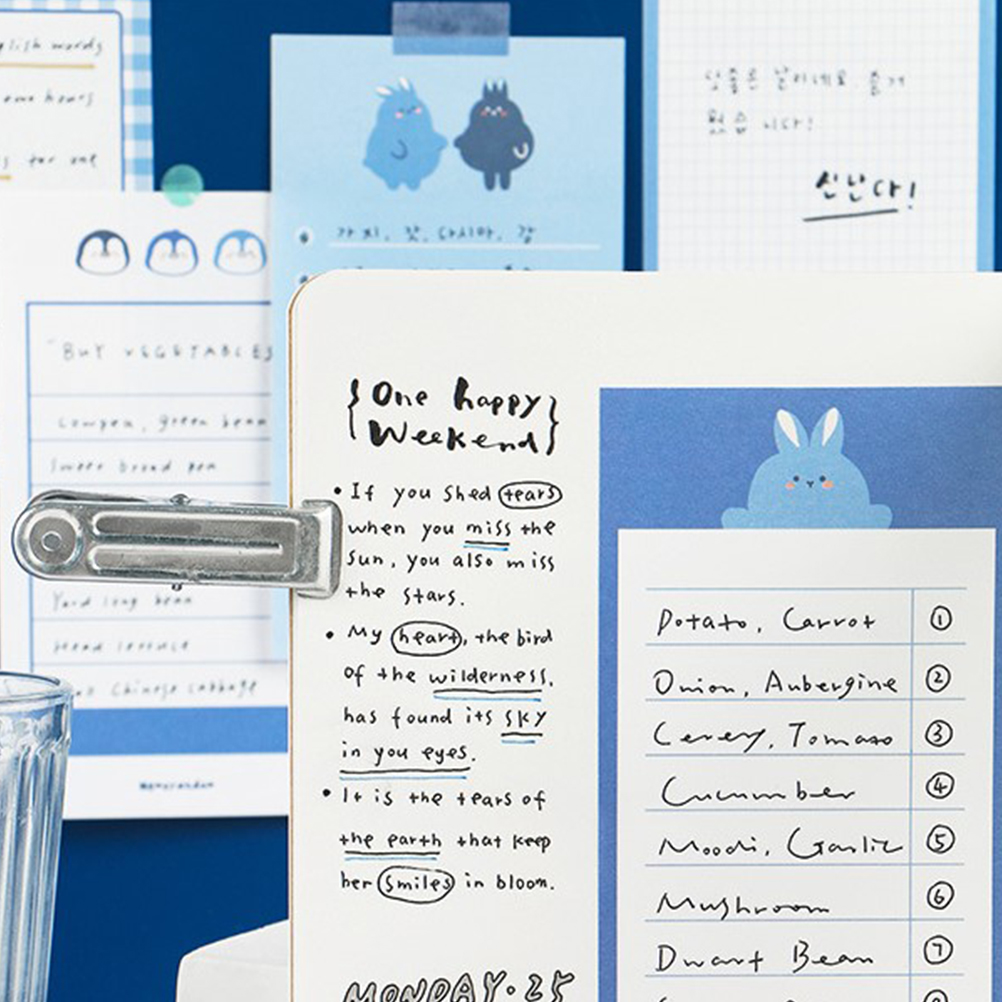 glish words
ome hours
s for one
가지, 잣, 다시마, 감
웠습니다!
신난다!
"BUY VEGETABLES
Cowpea, green bean
Sweet broad pea
Yard long bean
Head lettuce
Chinese cabbage
Memorandum
{One happy
Weekend}
• If you shed tears
when you miss the
sun, you also miss
the stars.
• My heart, the bird
of the wilderness,
has found its sky
in you eyes.
• It is the tears of
the earth that keep
her smiles in bloom.
MONDAY·25
Potato, Carrot ①
Onion, Aubergine ②
Cerery, Tomato ③
Cucumber ④
Moodi, Garlic ⑤
Mushroom ⑥
Dwarf Bean ⑦